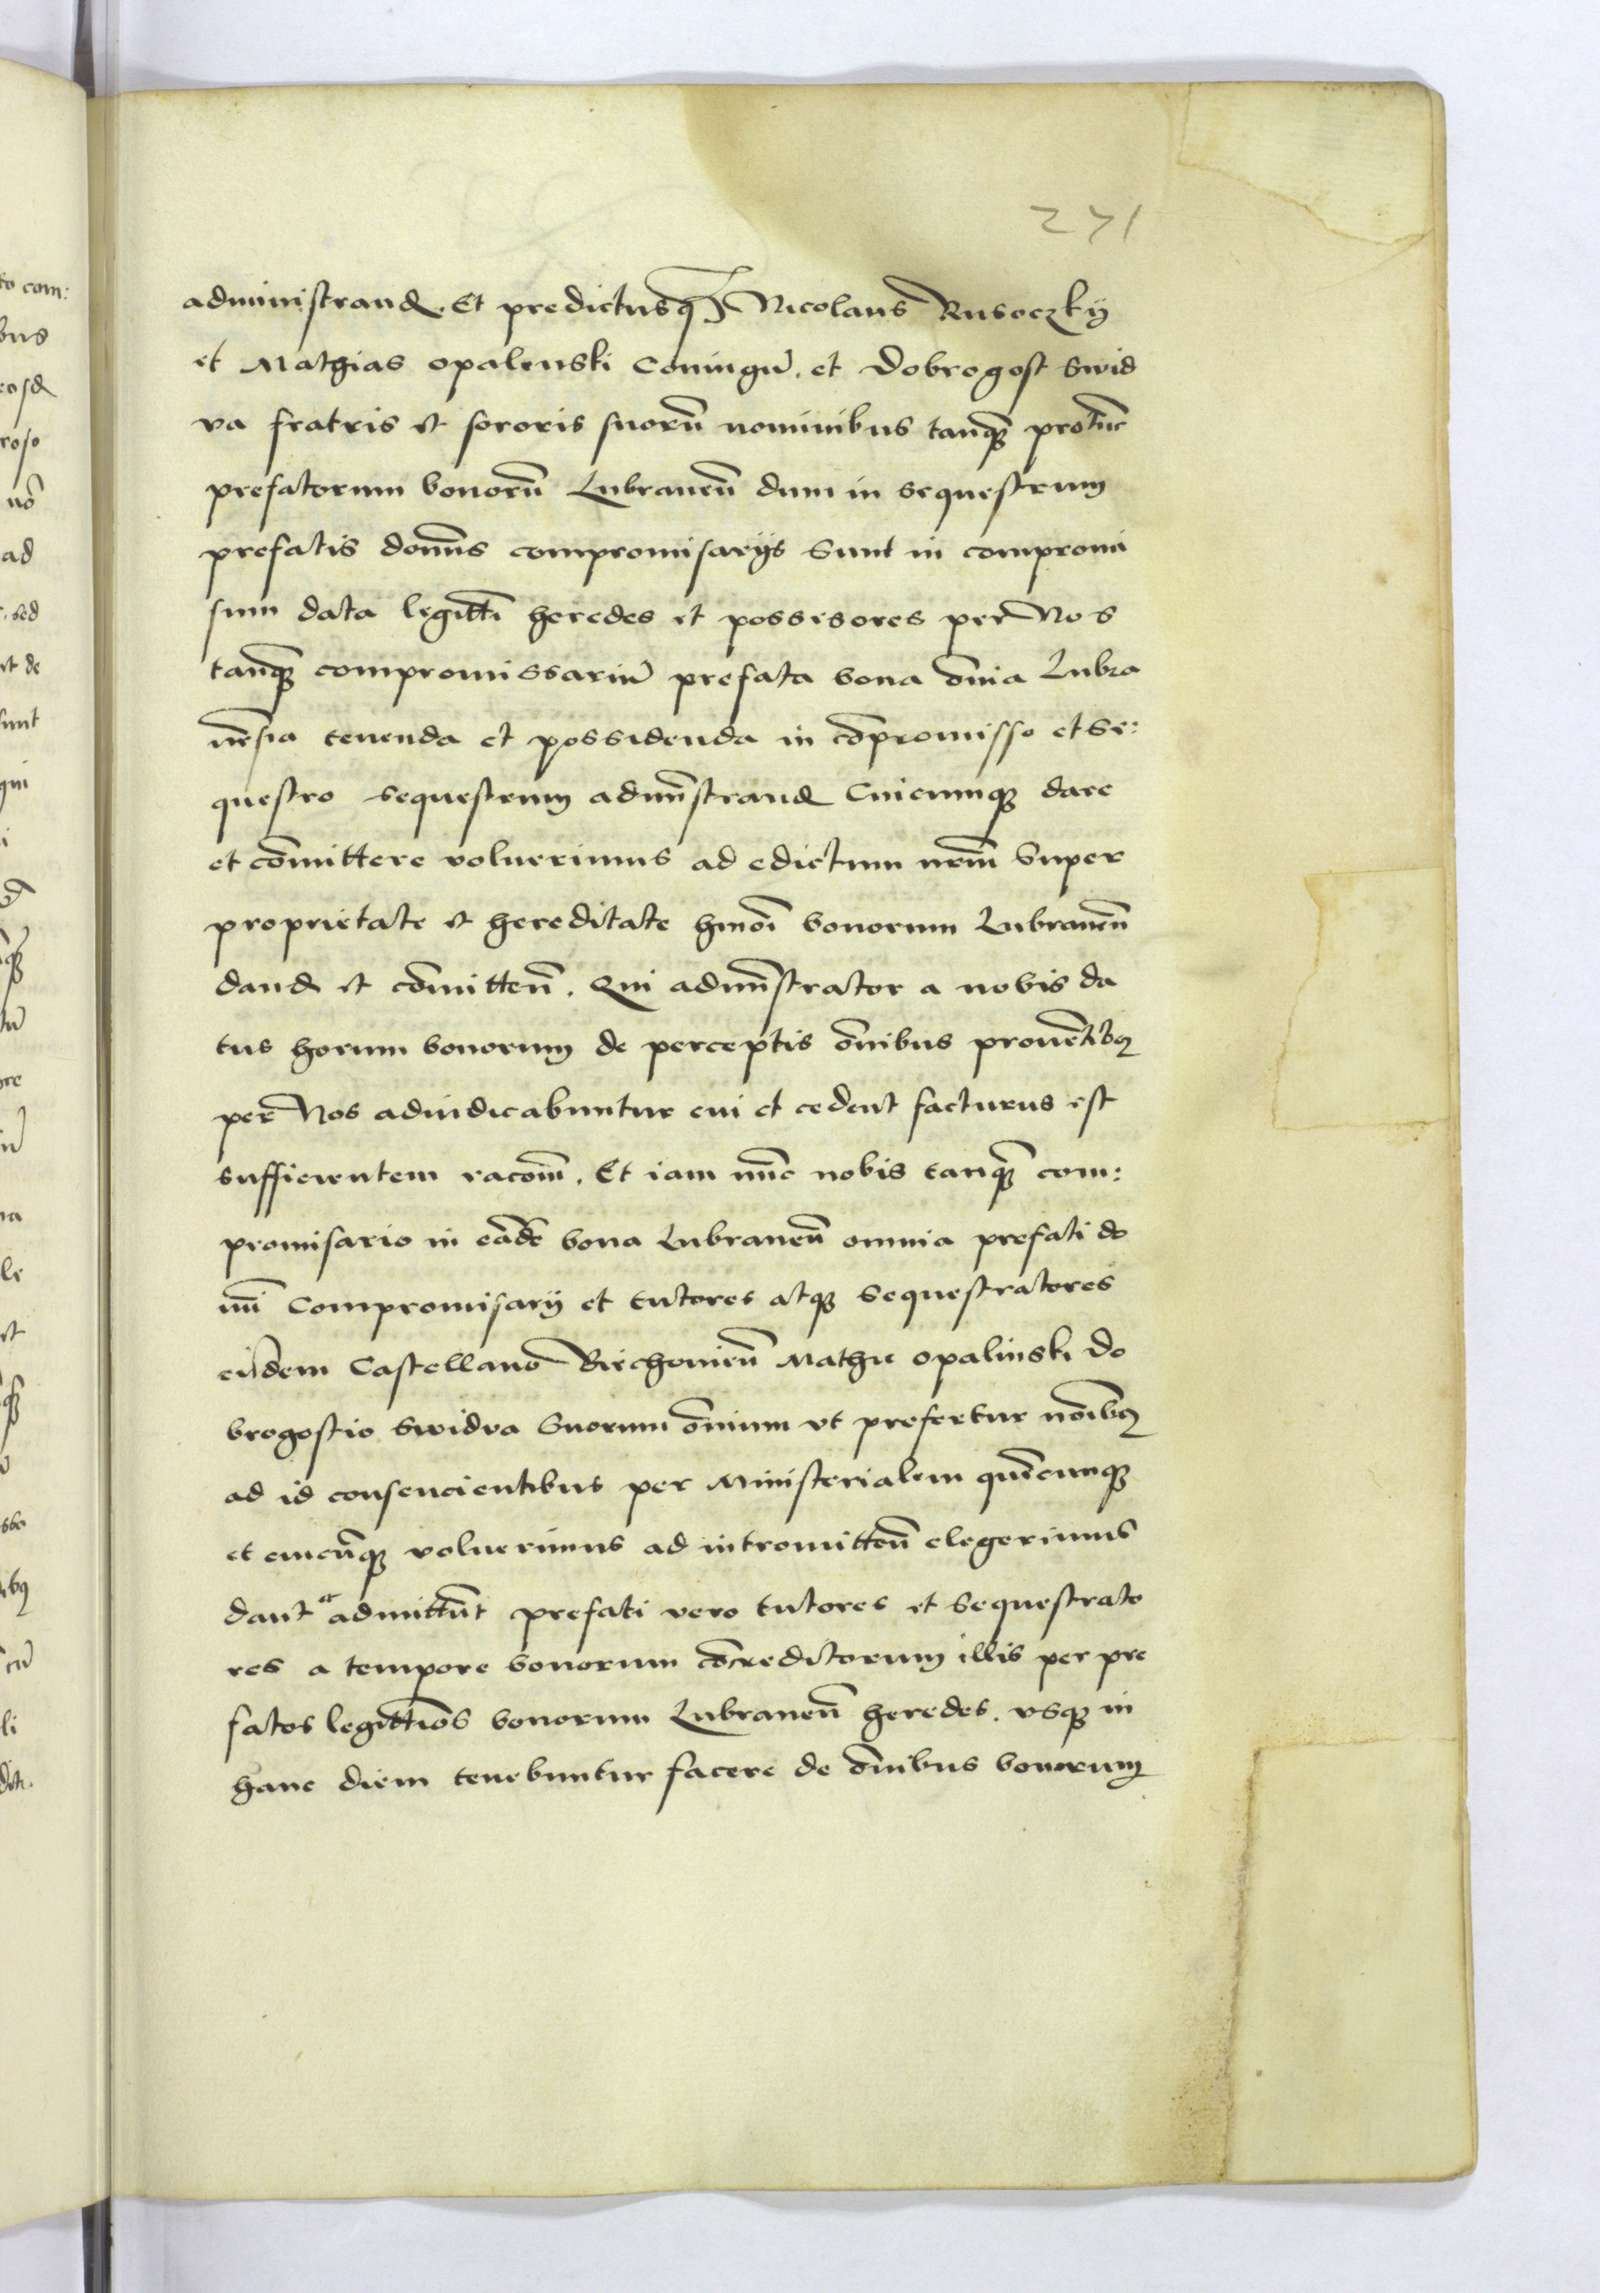 271
administrand. Et predictusq Nicolaus Rusoczky
et Mathias opalenski Coniugu. et Dobrogost Swid
va fratris et sororis suoru nominibus tanq protuc
prefatorum bonoru Lubraneñ dum in sequestrum
prefatis domis compromisarijs sunt in compromi
sum data legitti heredes et possesores per Nos
tanq compromissariu prefata bona omia Lubra
nesia tenenda et possidenda in copromisso et se:
questro sequestrum admistrand Cuicumq dare
et comittere voluerimus ad edictum nrm super
proprietate et hereditate hmoi bonorum Lubraneñ
dand et comitteñ. Qui admistrator a nobis da
tus horum bonorum de perceptis omibus prouetibq
per Nos adiudicabuntur cui et cedent facturus est
sufficientem racom. Et iam nuc nobis tanq com:
promisario in eade bona Lubraneñ omnia prefati do
mi Compromisarij et tutores atq sequestratores
eidem Castellano Biechovieñ Mathie opalinski Do
brogostio Swidva suorum omium vt prefertur noibq
ad id consencientibus per Ministerialem quecumq
et cuicuq voluerimus ad intromitteñ elegerimus
dant et admittut prefati vero tutores et sequestrato
res a tempore bonorum coreditorum illis per pre
fatos legittios bonorum Lubraneñ heredes. vsq in
hanc diem tenebuntur facere de omibus bonorum